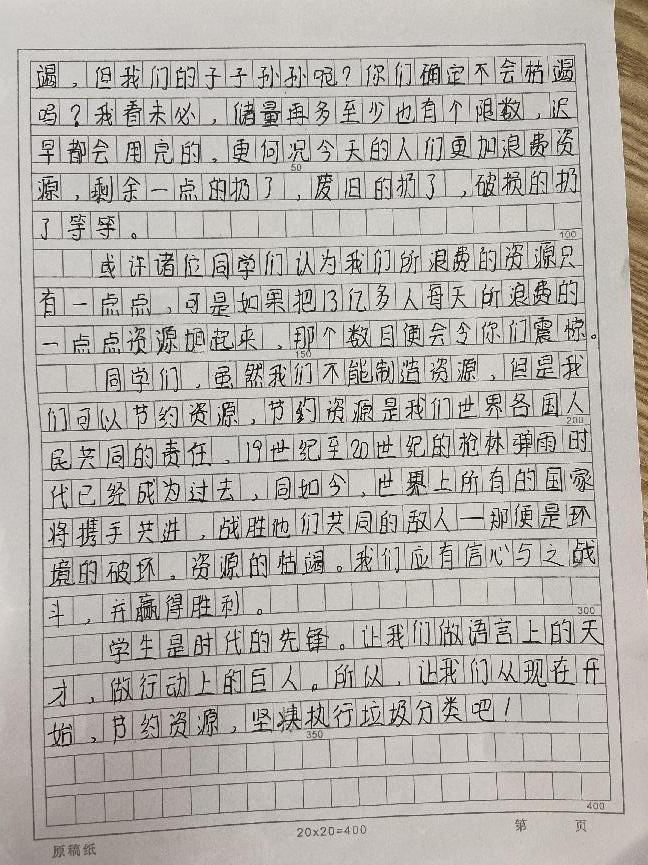 竭，但我们的子子孙孙呢？你们确定不会枯竭
吗？我看未必，储量再多至少也有个限数，迟
早都会用完的，更何况今天的人们更加浪费资
50
源，剩余一点的扔了，废旧的扔了，破损的扔
了等等。
100
或许诸位同学们认为我们所浪费的资源只
有一点点，可是如果把13亿多人每天所浪费的
一点点资源加起来，那个数目便会令你们震惊。
150
同学们，虽然我们不能制造资源，但是我
们可以节约资源，节约资源是我们世界各国人
200
民共同的责任，19世纪至20世纪的枪林弹雨时
代已经成为过去，同如今，世界上所有的国家
将携手共进，战胜他们共同的敌人—那便是环
境的破坏，资源的枯竭。我们应有信心与之战
斗，并赢得胜利。
300
学生是时代的先锋。让我们做语言上的天
才，做行动上的巨人。所以，让我们从现在开
始，节约资源，坚决执行垃圾分类吧！
350
400
原稿纸
20x20=400
第 页